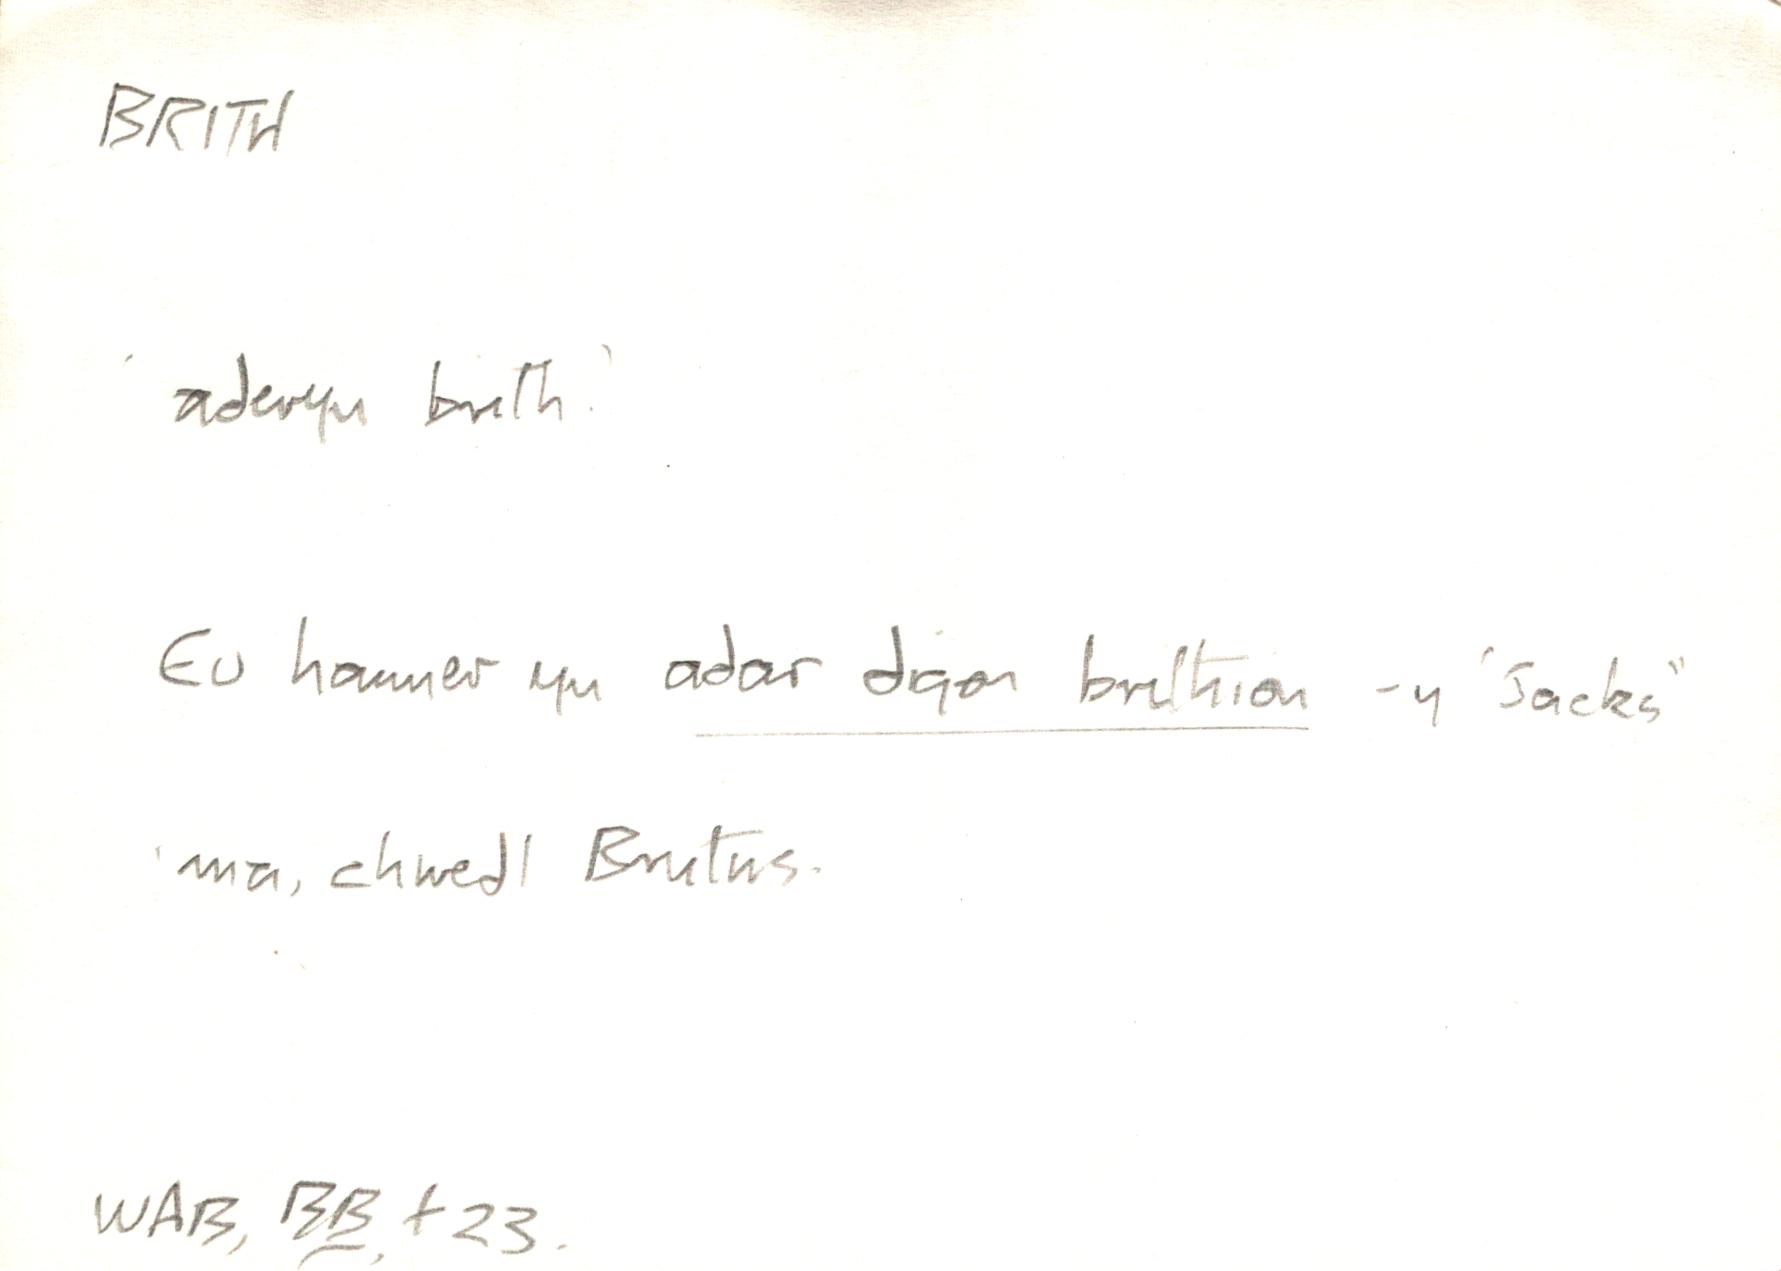 BRITH
'aderyn brith.'
Eu hanner yn adar digon brithion - y "Jacks"
'ma, chwedl Brutus.
WAB, BB, t 23.